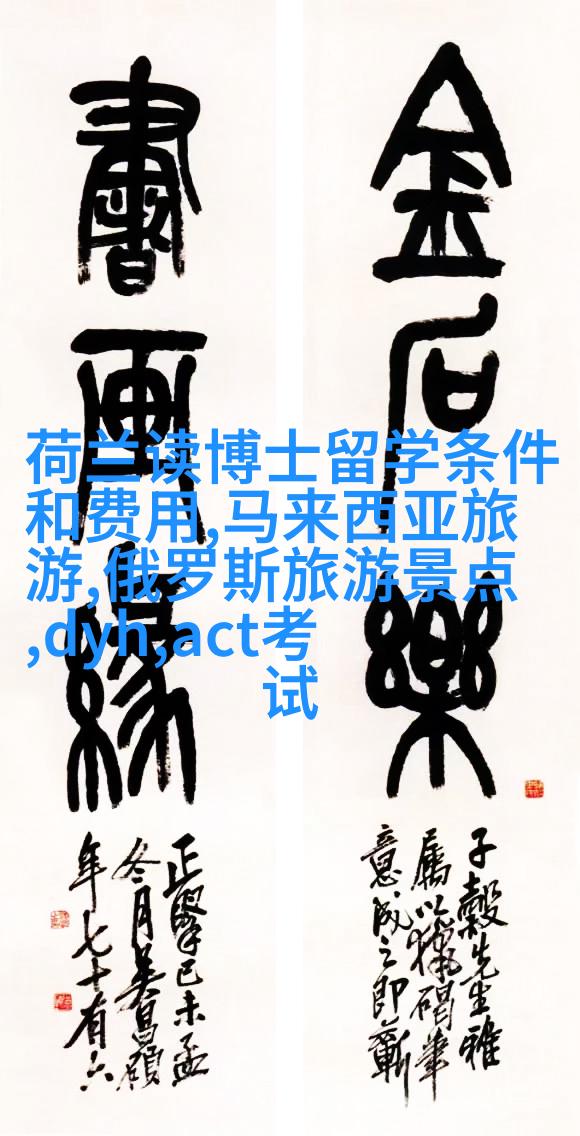 金石樂
書畫緣
子穀先生雅
屬以獵碣筆
意成之即蘄
正擘己未孟
冬月吳昌碩
年七十有六
荷兰读博士留学条件
和费用,马来西亚旅
游,俄罗斯旅游景点
,dyh,act考
试